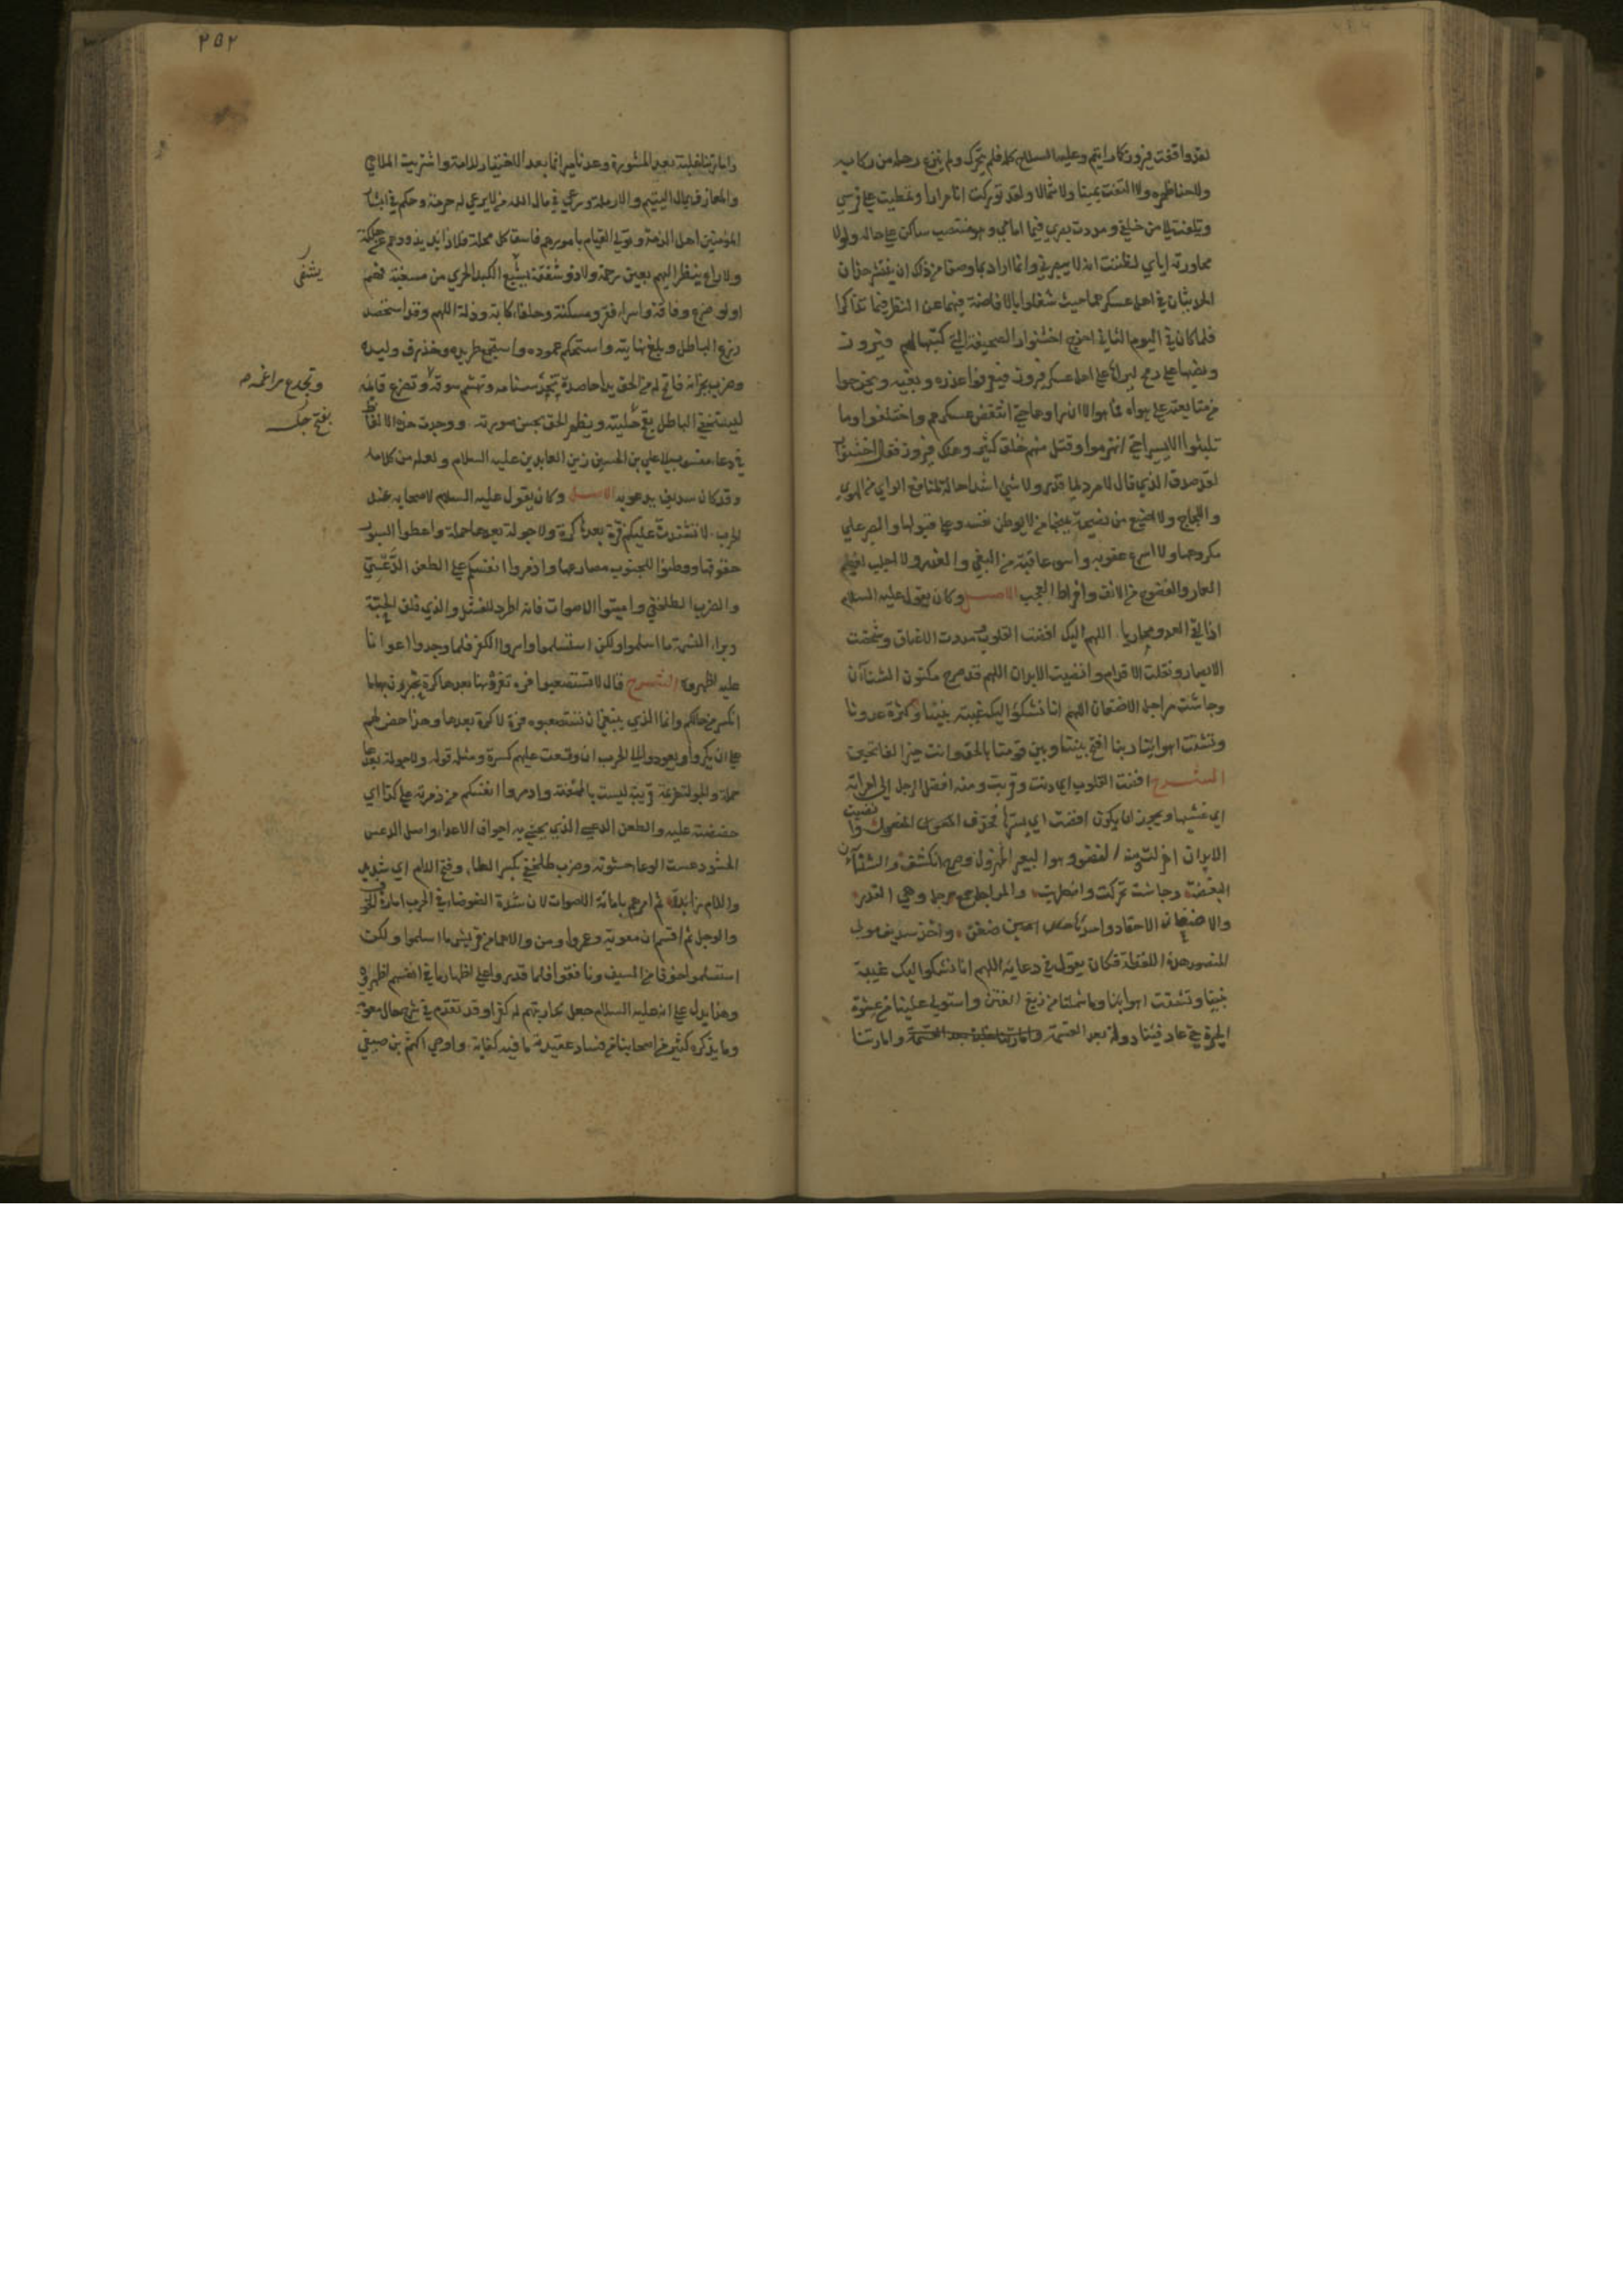 لقد واقفت فيروز كما رايتم وعليه السلاح كله فلم يتحرك ولم ينزع رجله من ركابه
ولا حنا ظهره ولا التفت يمينا ولا شمالا ولقد توركت انا مرارا وتمطيت على فرسي
وتلفت الى من خلفي ومددت بصري فيما امامي وهو منتصب ساكن على حاله ولولا
محاورته اياي لظننت انه لا يبصرني وانما اراد بما وصفا من ذلك ان ينتشر هذان
الحديثان في اهل عسكرهما حيث شغلوا بالافاضة فيهما عن النظر فيما تذاكرا
فلما كان في اليوم الثاني اخرج اخشنوار الصحيفة التي كتبها لهم فيروز
ونصبها على رمح ليراها اهل عسكر فيروز فيعرفوا غدره وبغيه ويخرجوا
من متابعته على هواه فما هو الا ان راوها حتى انتقض عسكرهم واختلفوا وما
تلبثوا الا يسيرا حتى انهزموا وقتل منهم خلق كثير وهلك فيروز فقال اخشنوار
لقد صدق الذي قال لا مرد لما قدر ولا شي اشد احالة لمنافع الراي من الهوى
واللجاج ولا اضيع من نصيحة يمنحها من لا يوطن نفسه على قبولها والصبر على
مكروهها ولا اسرع عقوبة واسوء عاقبة من البغي والغدر ولا اجلب لعظيم
العار والفضوح من الانف وافراط العجب الاصل وكان يقول عليه السلام
اذا لقي العدو محاربا اللهم اليك افضت القلوب ومدت الاعناق وشخصت
الابصار ونقلت الاقدام وانضيت الابدان اللهم قد صرح مكنون الشنآن
وجاشت مراجل الاضغان اللهم انا نشكو اليك غيبة نبينا وكثرة عدونا
وتشتت اهوائنا ربنا افتح بيننا وبين قومنا بالحق وانت خير الفاتحين
الشرح افضت القلوب اي دنت وقربت ومنه افضى الرجل الى امراته
اي غشيها ويجوز ان يكون افضت اي بسرها فحذف المفعول وانضيت
الابدان اهزلت ومنه النضو وهو البعير المهزول وصرح انكشف والشنآن
البغضة وجاشت تحركت واضطربت والمراجل جمع مرجل وهي القدر
والاضغان الاحقاد واحدها ضغن واخذ سديف مولى
المنصور هذه اللفظة فكان يقول في دعايه اللهم انا نشكو اليك غيبة
نبينا وتشتت اهوائنا وما شملنا من زيغ الفتن واستولى علينا من غشوة
الحيرة حتى عاد فيئنا دولة بعد القسمة وامارتنا
٢٥٢
وامارتنا غلبة بعد المشورة وعدنا ميراثا بعد الاختيار للامة واشتريت الملاهي
والمعازف بمال اليتيم والارملة ورعى في مال الله من لا يرعى له حرمة وحكم في ابشار
المؤمنين اهل الذمة وتولى القيام بامورهم فاسق كل محلة فلا ذائد يذودهم عن هلكة
ولا راع ينظر اليهم بعين رحمة ولا ذو شفقة يشبع الكبد الحرى من مسغبة فهم
يشفى
اولو ضرع وفاقة واسراء فقر ومسكنة وحلفاء كابة وذلة اللهم وقد استحصد
زرع الباطل وبلغ نهايته واستحكم عموده واستجمع طريده وحذرف وليده
وضرب بجرانه فاتح له من الحق يدا حاصدة تجذ سنامه وتهشم سوقه وتصرع قائمه
وتجدع مراغمه
ليستخفي الباطل بقبح حليته ويظهر الحق بحسن صورته ووجدت هذه الالفاظ
بقبح
في دعاء منسوب الى علي بن الحسين زين العابدين عليه السلام ولعله من كلامه
وقد كان سديف يدعو به الاصل وكان يقول عليه السلام لاصحابه عند
الحرب لا تشتدن عليكم فرة بعدها كرة ولا جولة بعدها حملة واعطوا السيوف
حقوقها ووطنوا للجنوب مصارعها واذمروا انفسكم على الطعن الدعسي
والضرب الطلخفي واميتوا الاصوات فانه اطرد للفشل والذي فلق الحبة
وبرا النسمة ما اسلموا ولكن استسلموا واسروا الكفر فلما وجدوا اعوانا
عليه اظهروه الشرح قال لا تستصعبوا فرة تفرونها بعدها كرة تجبرون بها ما
انكسر من حالكم وانما الذي ينبغي ان تستصعبوه فرة لا كرة بعدها وهذا حض لهم
على ان يكروا ويعودوا الى الحرب ان وقعت عليهم كسرة ومثله قوله ولا جولة بعدها
حملة والجولة هزيمة قريبة ليست بالممعنة واذمروا انفسكم من ذمره على كذا اي
حضضته عليه والطعن الدعسي الذي يحشى به اجواف الاعداء واصل الدعس
الحشو دعست الوعاء حشوته وضرب طلخفي بكسر الطاء وفتح اللام اي شديد
واللام زائدة ثم امرهم باماتة الاصوات لان شدة الضوضاء في الحرب امارة الخوف
والوجل ثم اقسم ان معوية وعمروا ومن والاهما من قريش ما اسلموا ولكن
استسلموا خوفا من السيف ونافقوا فلما قدروا على اظهار ما في انفسهم اظهروه
وهذا يدل على انه عليه السلام جعل محاربتهم له كفرا وقد تقدم في شرح حال معوية
وما يذكره كثير من اصحابنا من فساد عقيدته ما فيه كفاية واوصى اكثم بن صيفي